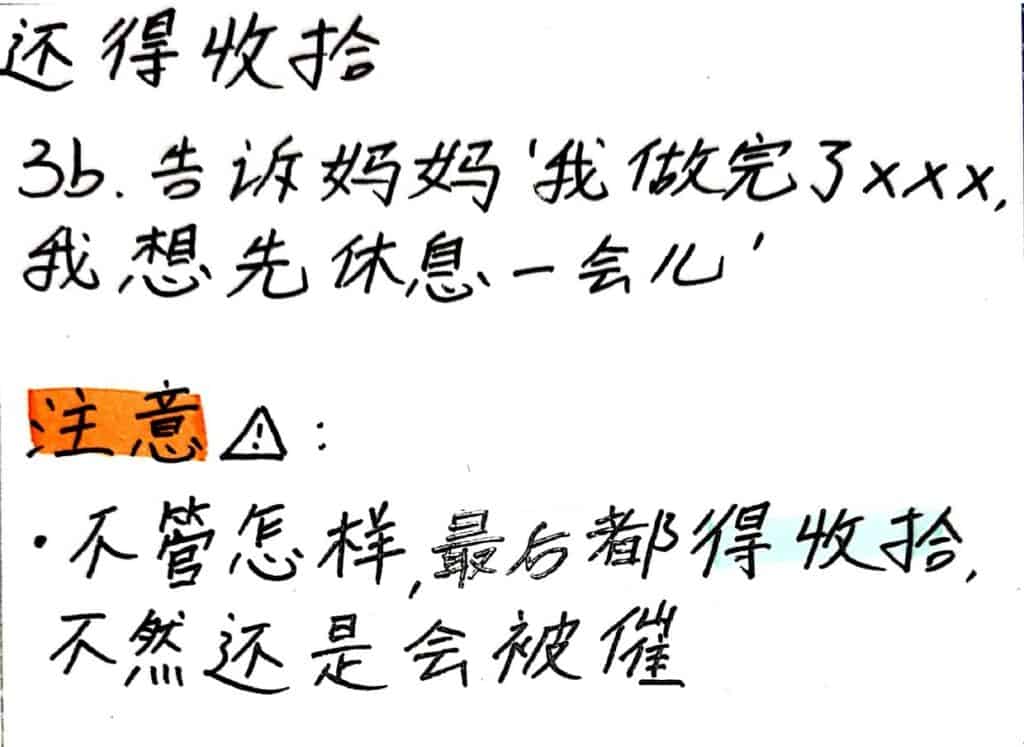 还得收拾
3b. 告诉妈妈'我做完了xxx,
我想先休息一会儿'
注意⚠:
·不管怎样,最后都得收拾,
不然还是会被催